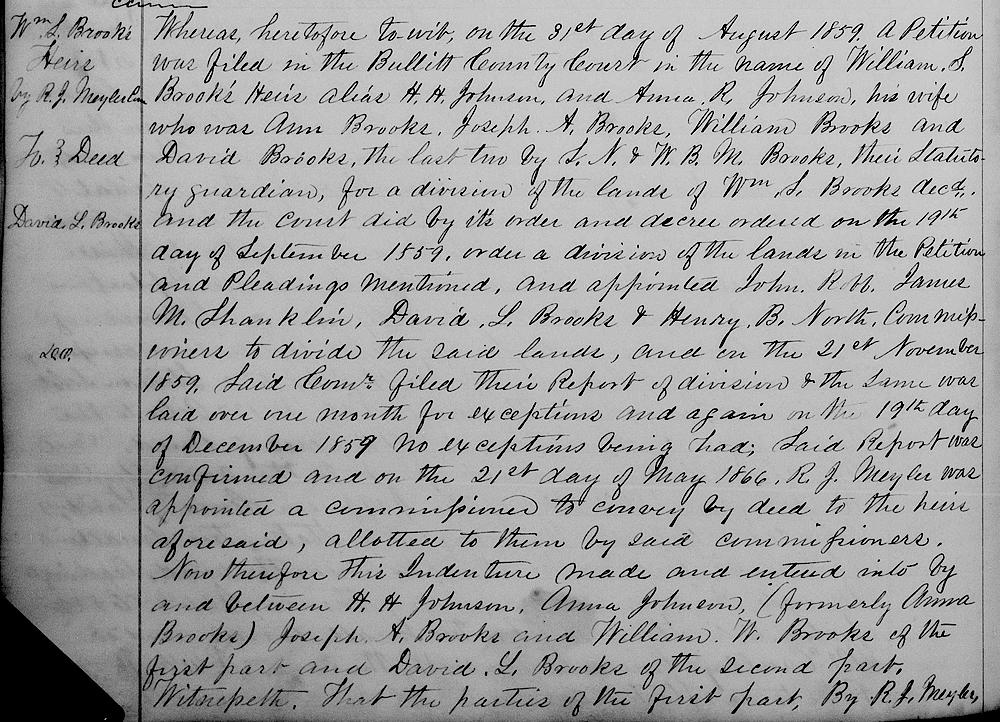 Wm. S. Brooks
Heirs
by R. J. Meyler Com
To } Deed
David. L. Brooks
Whereas, heretofore to wit, on the 31st day of August 1859, A Petition
was filed in the Bullitt County Court in the name of William. S.
Brook's Heirs alias H. H. Johnson, and Anna. R. Johnson, his wife
who was Ann Brooks. Joseph. A. Brooks, William Brooks and
David Brooks, the last two by S. N. & W. B. M. Brooks, their Statuto-
ry guardian, for a division of the lands of Wm. S. Brooks decd.
and the court did by its order and decree ordered on the 19th
day of September 1859. order a division of the lands in the Petition
and Pleadings mentioned, and appointed John. R. James
M. Shanklin, David. L. Brooks & Henry. B. North, Commiss-
ioners to divide the said lands, and on the 21st November
1859. Said Comr. filed their Report of division & the same was
laid over one month for exceptions and again on the 19th day
of December 1859 no exceptions being had; Said Report was
confirmed and on the 21st day of May 1866. R J. Meyler was
appointed a commissioner to convey by deed to the heirs
aforesaid, allotted to them by said commissioners.
Now therefore this Indenture made and entered into by
and between H. H Johnson, Anna Johnson, (formerly Anna
Brooks) Joseph. A. Brooks and William. W. Brooks of the
first part and David. L. Brooks of the second part.
Witnesseth. That the parties of the first part, By R. J. Meyler,